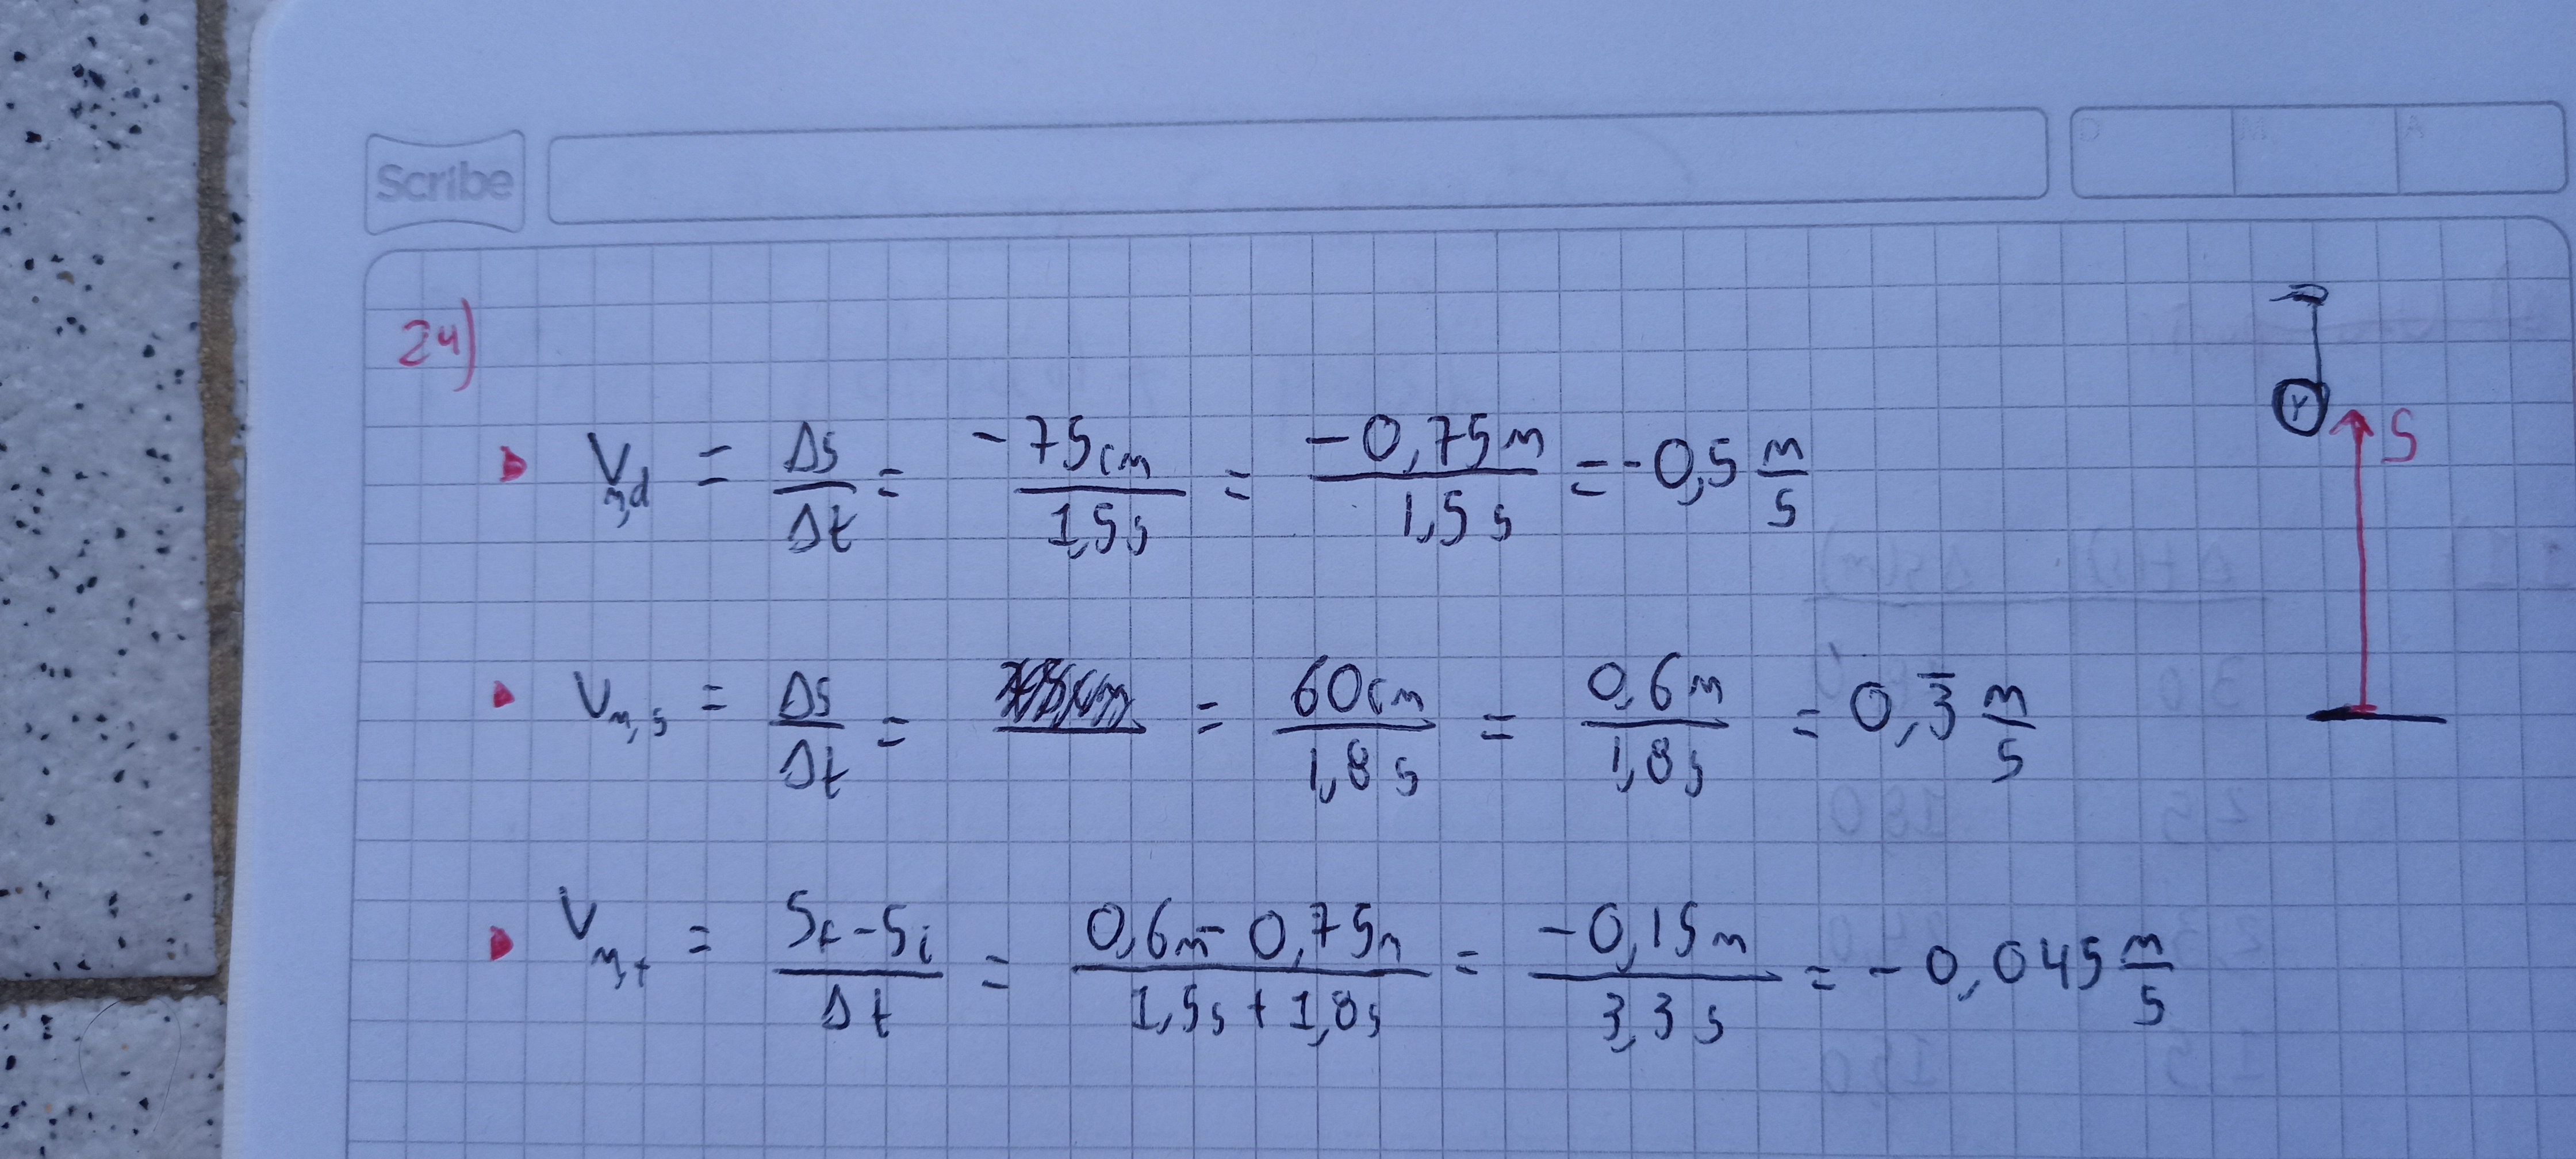 Scribe
D M A
24)
V m,d = Δs/Δt = -75cm/1,5s = -0,75m/1,5s = -0,5 m/s
S
V m,s = Δs/Δt = = 60cm/1,8s = 0,6m/1,8s = 0,3̅ m/s
V m,t = Sf-Si/Δt = 0,6m-0,75m/1,5s+1,8s = -0,15m/3,3s = -0,045 m/s